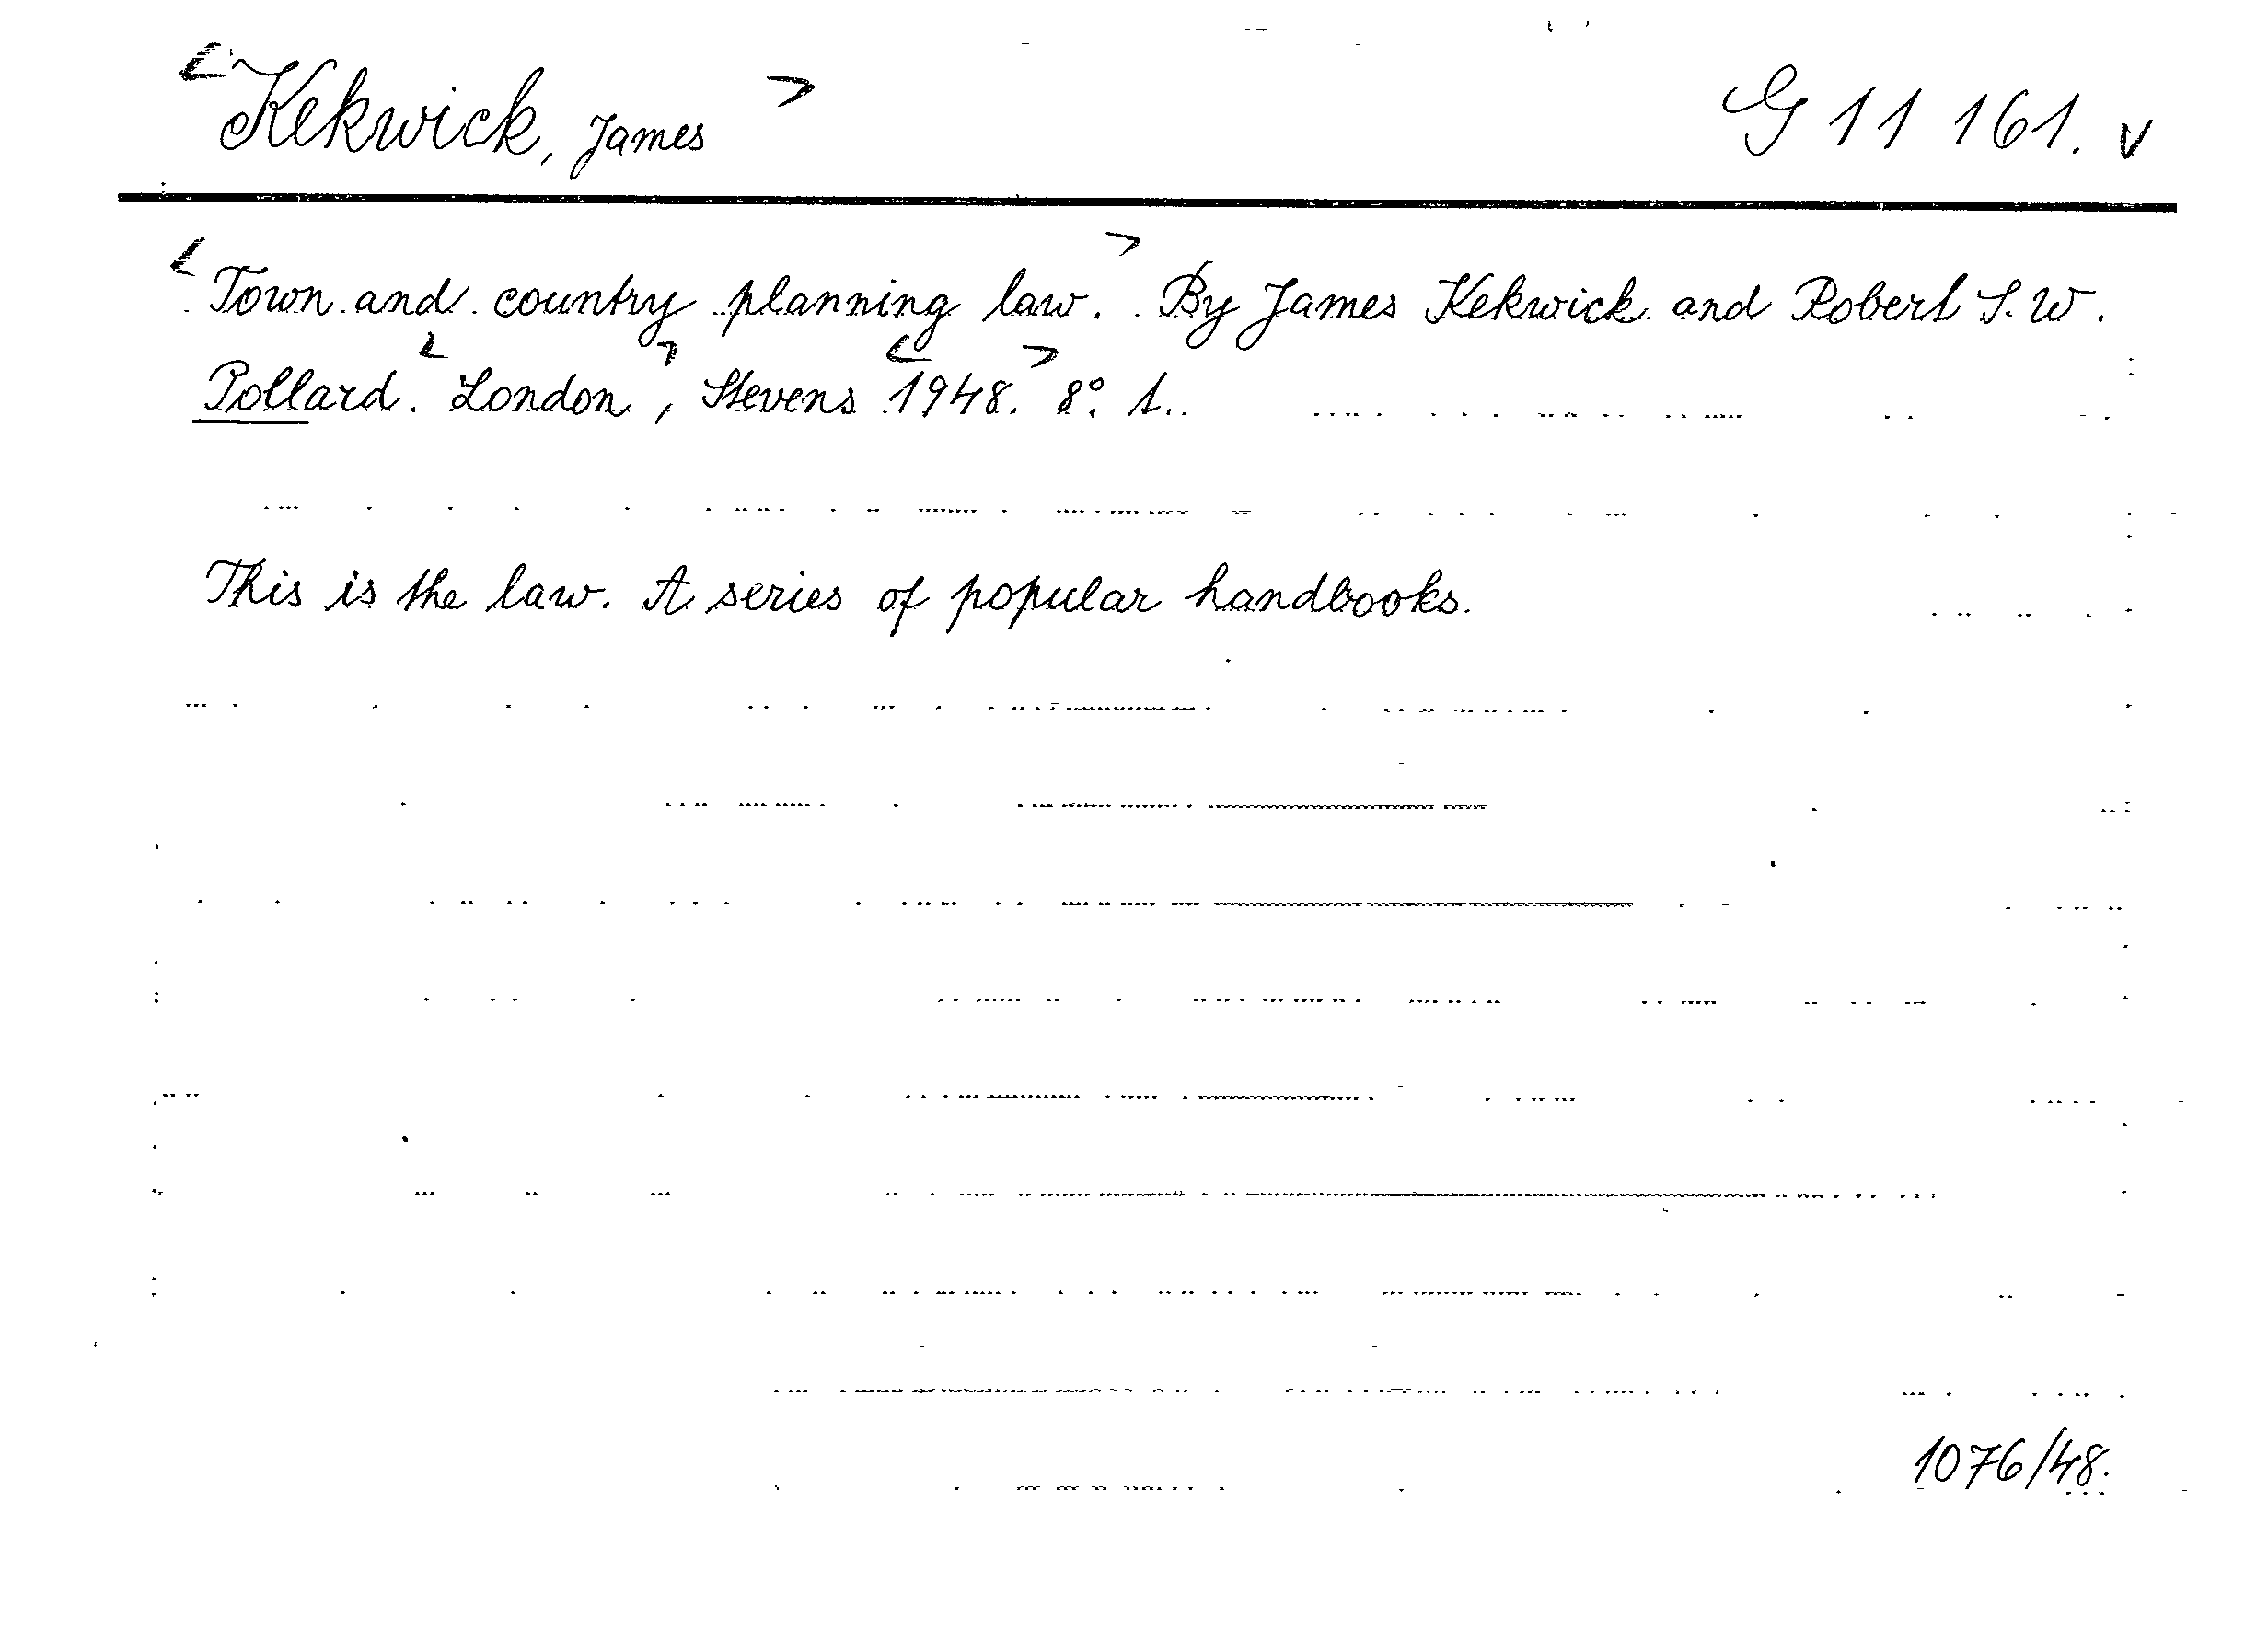 <Kekwick, James> G 11 161. v
<Town and country planning law.> By James Kekwick and Robert S. W.
Pollard. <London>, Stevens <1948.> 8°. 1.
This is the law. A series of popular handbooks.
1076/48.